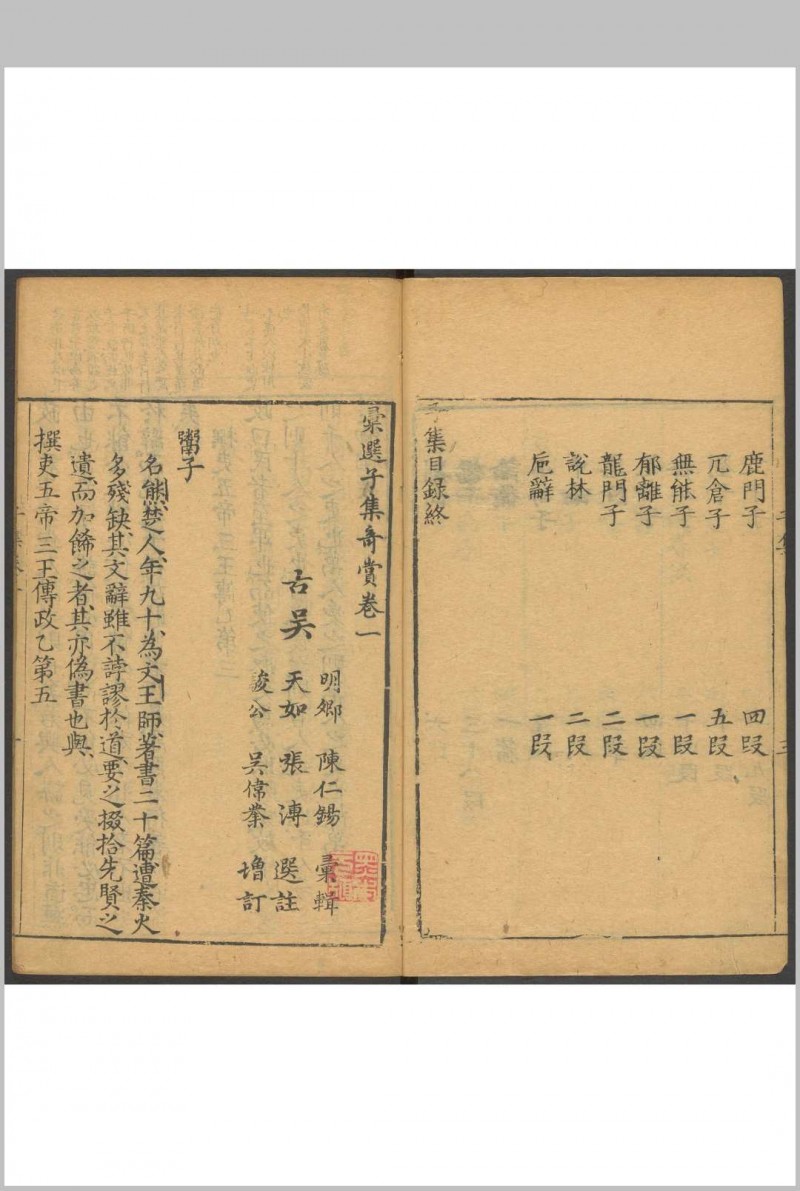 鹿門子　四段
亢倉子　五段
無能子　一段
郁離子　一段
龍門子　二段
說林　二段
巵辭　一段
子集目錄終
彙選子集奇賞卷一
明卿　陳仁錫　彙輯
古吳　天如　張溥　選註
駿公　吳偉業　增訂
鬻子
名熊、楚人、年九十、為文王師、著書二十篇、遭秦火
多殘缺、其文辭雖不誖謬於道、要之掇拾先賢之
遺、而加餙之者、其亦偽書也與、
撰吏五帝三王傳政乙第五